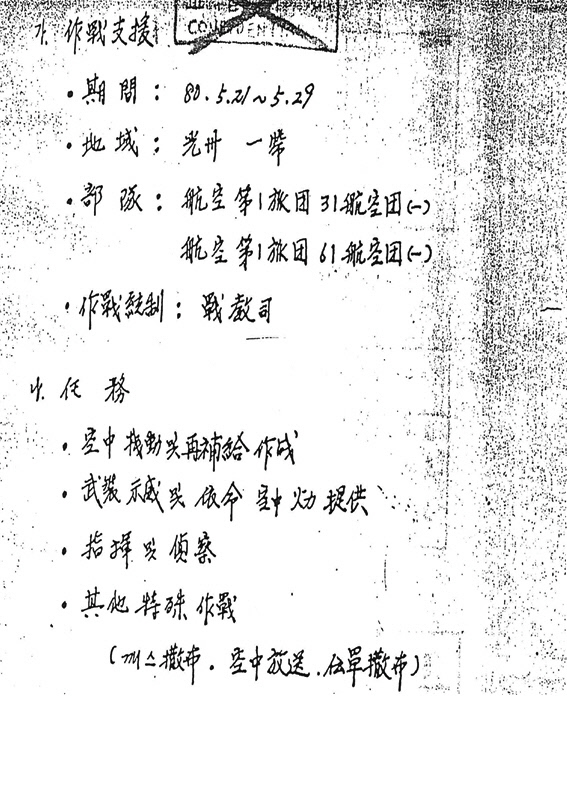 CONFIDENTIAL
가. 作戰支援
• 期間 : 80. 5.21 ~ 5.29
• 地域 : 光州 一帶
• 部隊 : 航空 第1旅団 31航空団(-)
航空 第1旅団 61航空団(-)
• 作戰統制 : 戰敎司
나. 任務
• 空中機動 및 再補給 作戰
• 武裝示威 및 依命 空中火力 提供
• 指揮 및 偵察
• 其他 特殊作戰
(깨스撒布. 空中放送. 伝單撒布)